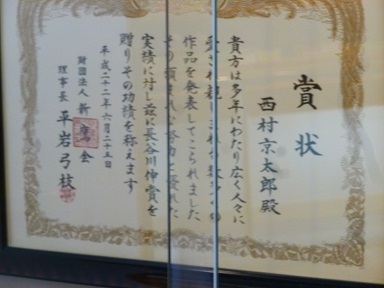 賞状
西村京太郎殿
貴方は多年にわたり広く人々に
愛され親しまれ
作品を発表してこられました
その類まれな努力と優れた
実績に対し茲に長谷川伸賞を
贈りその功績を称えます
平成二十二年六月二十五日
財団法人新鷹会
理事長 平岩弓枝